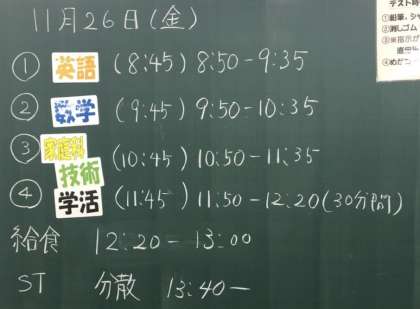 11月26日(金)
① 英語 (8:45) 8:50-9:35
② 数学 (9:45) 9:50-10:35
③ 家庭科 技術 (10:45) 10:50-11:35
④ 学活 (11:45) 11:50-12:20(30分間)
給食 12:20-13:00
ST 分散 13:40-
テスト時
①鉛筆、シャ
②消しゴム
③※指示が
④めだつ